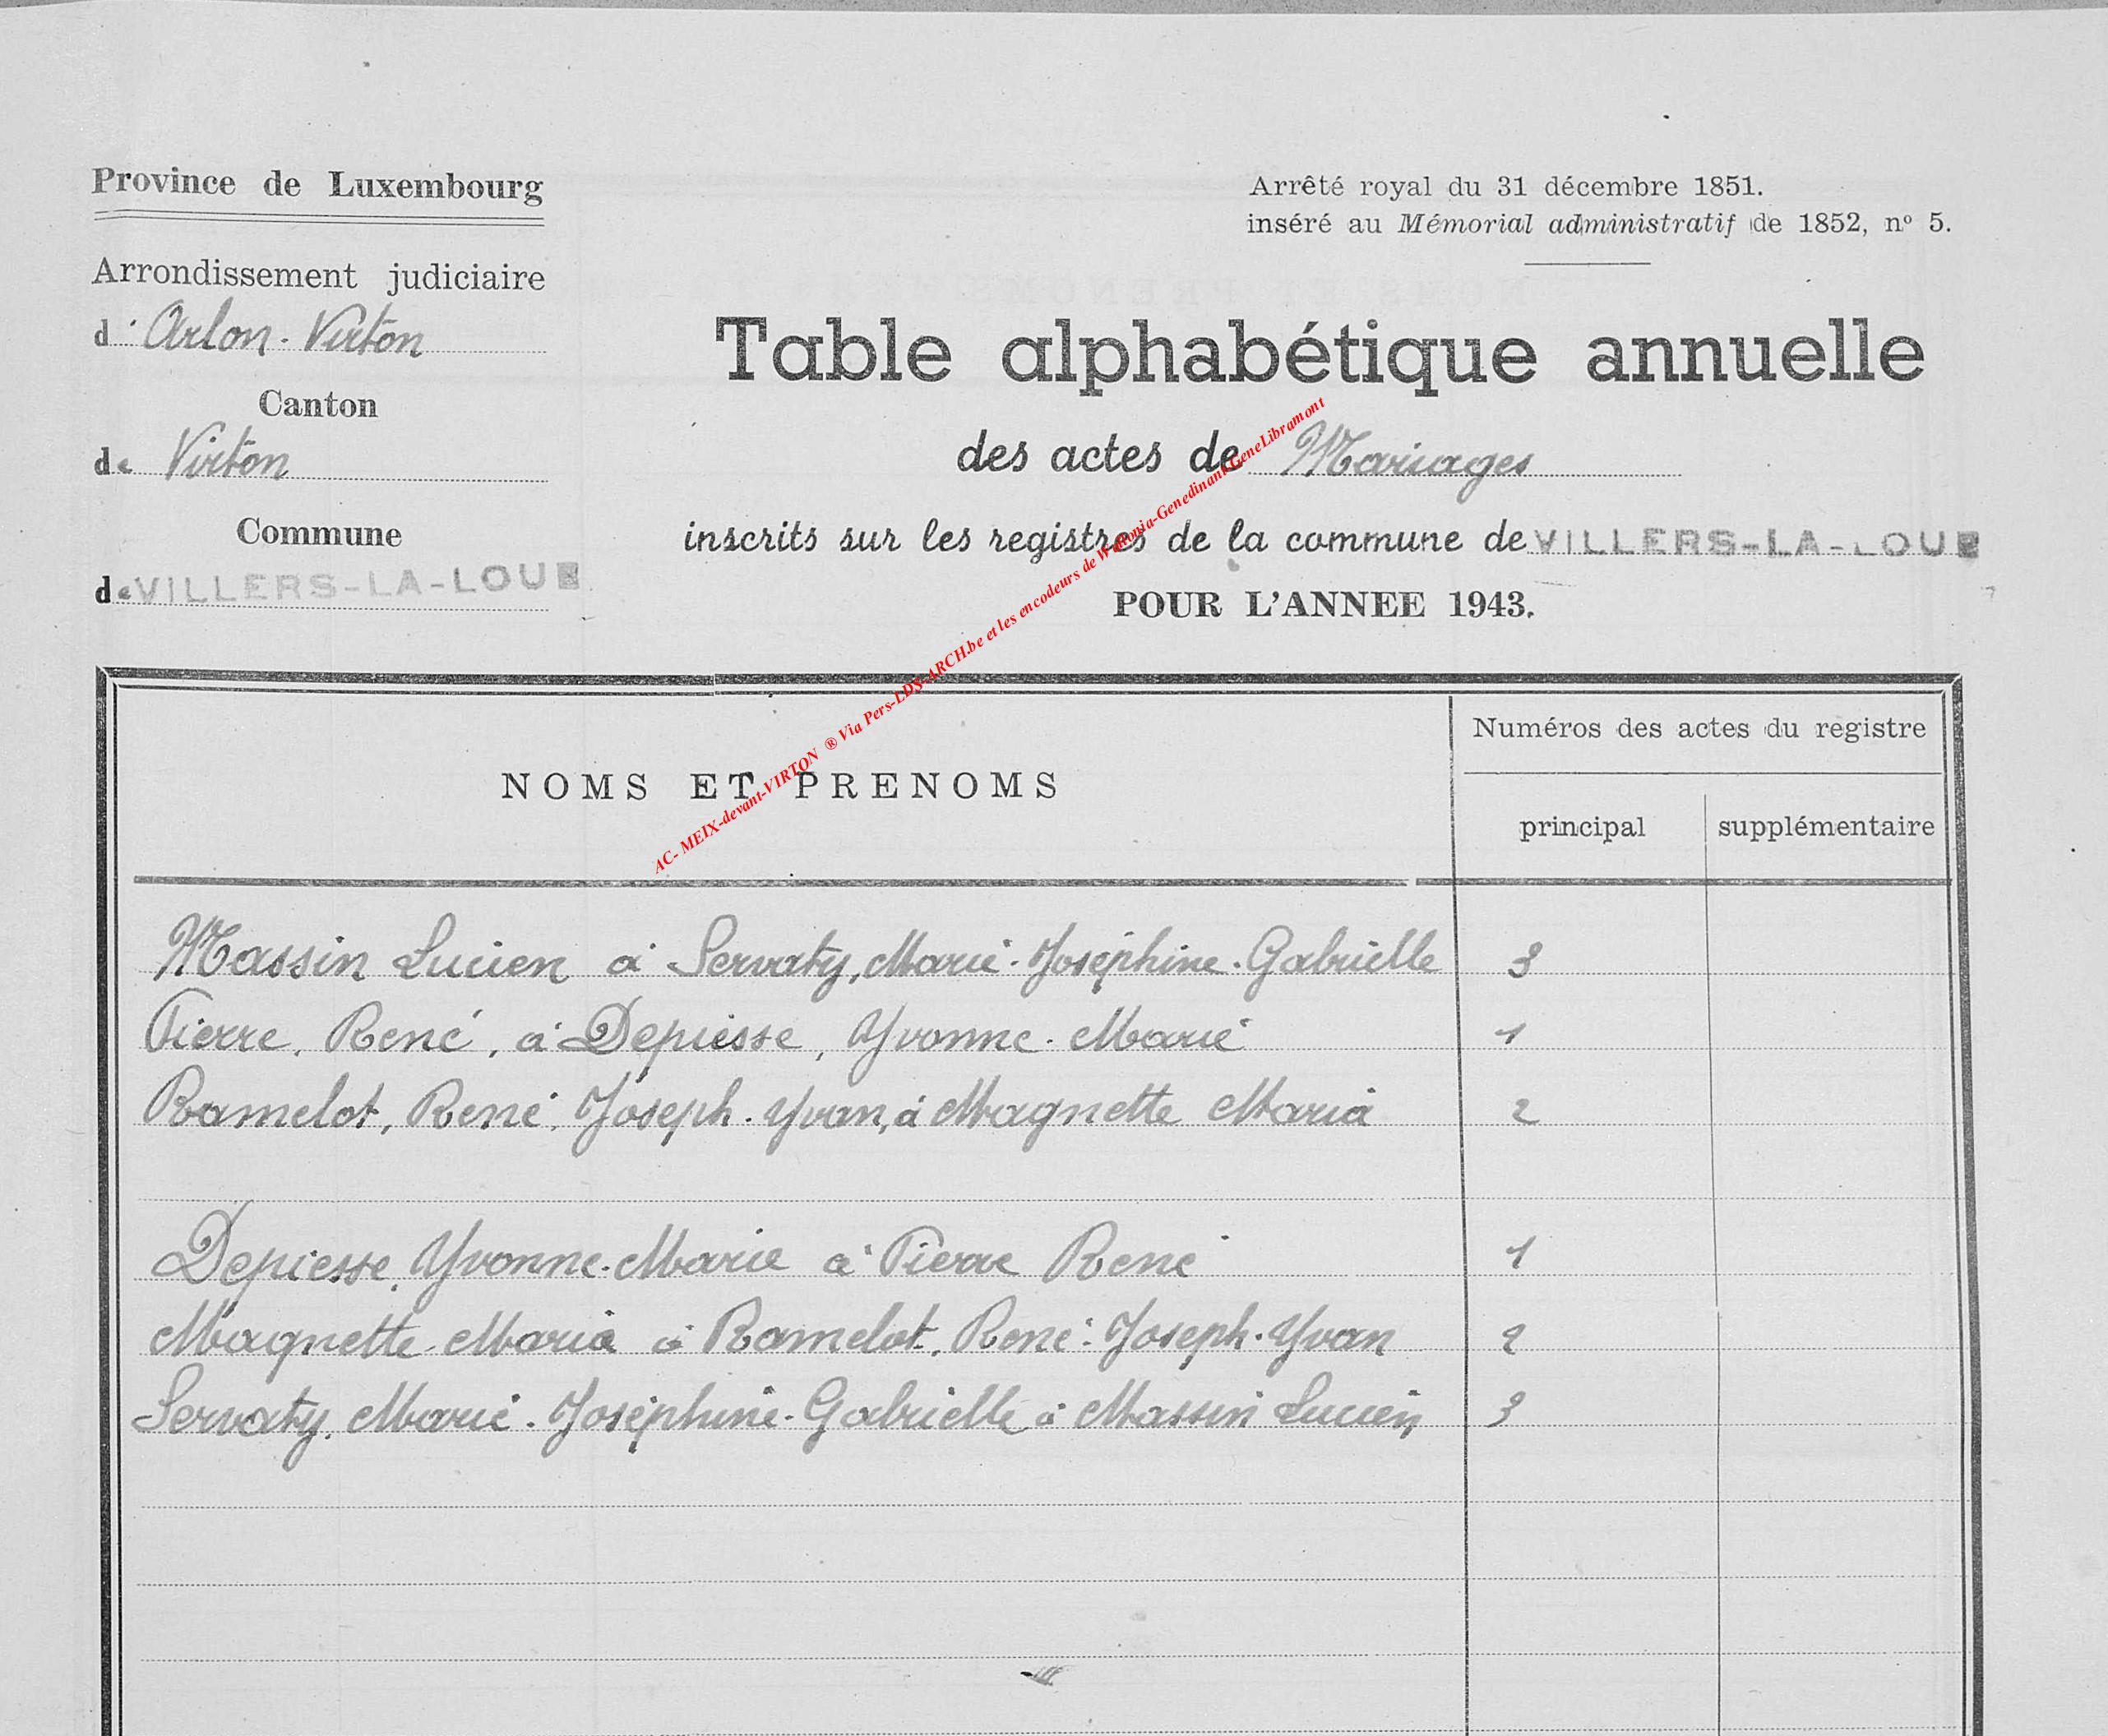 Province de Luxembourg
Arrondissement judiciaire
d' Arlon-Virton
Canton
de Virton
Commune
de VILLERS-LA-LOUE
Arrêté royal du 31 décembre 1851.
inséré au Mémorial administratif de 1852, nº 5.
Table alphabétique annuelle
des actes de Mariages
inscrits sur les registres de la commune de VILLERS-LA-LOUE
POUR L'ANNEE 1943.
AC- MEIX-devant-VIRTON ® Via Pers-LDS-ARCH.be et les encodeurs de Wallonia-Genedinant-GeneLibramont
NOMS ET PRENOMS
Numéros des actes du registre
principal supplémentaire
Massin Lucien à Servaty, Marie-Joséphine-Gabrielle 3
Pierre, René, à Depiesse, Yvonne-Marie 1
Ramelot, René-Joseph-Yvan, à Magnette Maria 2
Depiesse, Yvonne-Marie à Pierre René 1
Magnette Maria à Ramelot, René-Joseph-Yvan 2
Servaty, Marie-Joséphine-Gabrielle à Massin Lucien 3